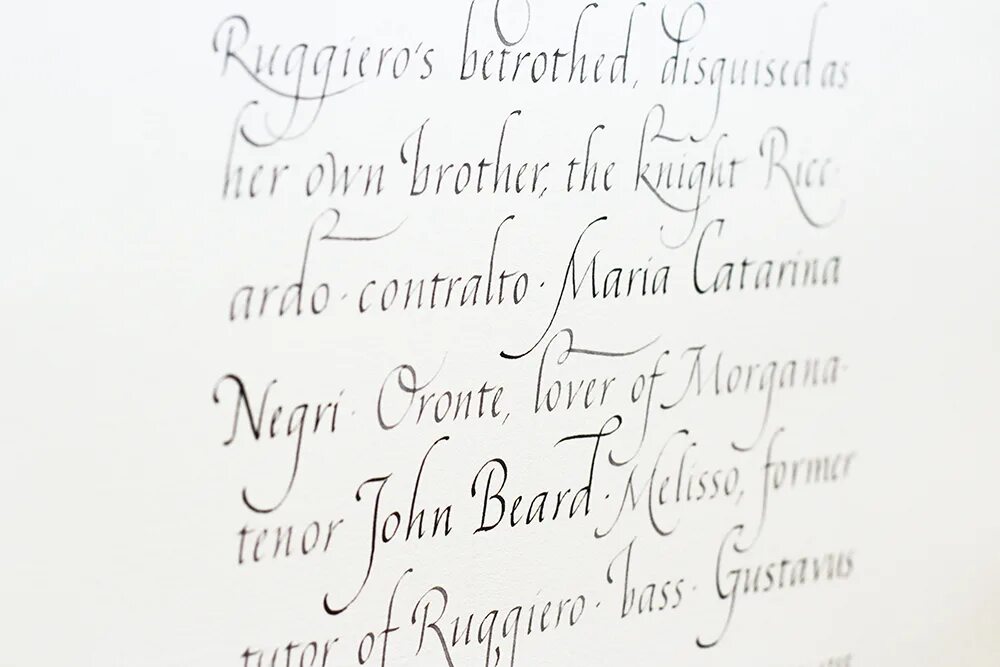 Ruggiero's betrothed, disguised as
her own brother, the knight Ricc
ardo · contralto · Maria Catarina
Negri · Oronte, lover of Morgana ·
tenor John Beard · Melisso, former
tutor of Ruggiero · bass · Gustavus